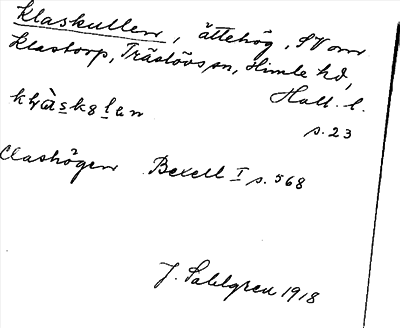 Klaskullen, ättehög, SV om
Klastorp, Träslövs sn, Himle hd,
Hall. l.
s. 23
Clashögen Bexell I s. 568
J. Sahlgren 1918